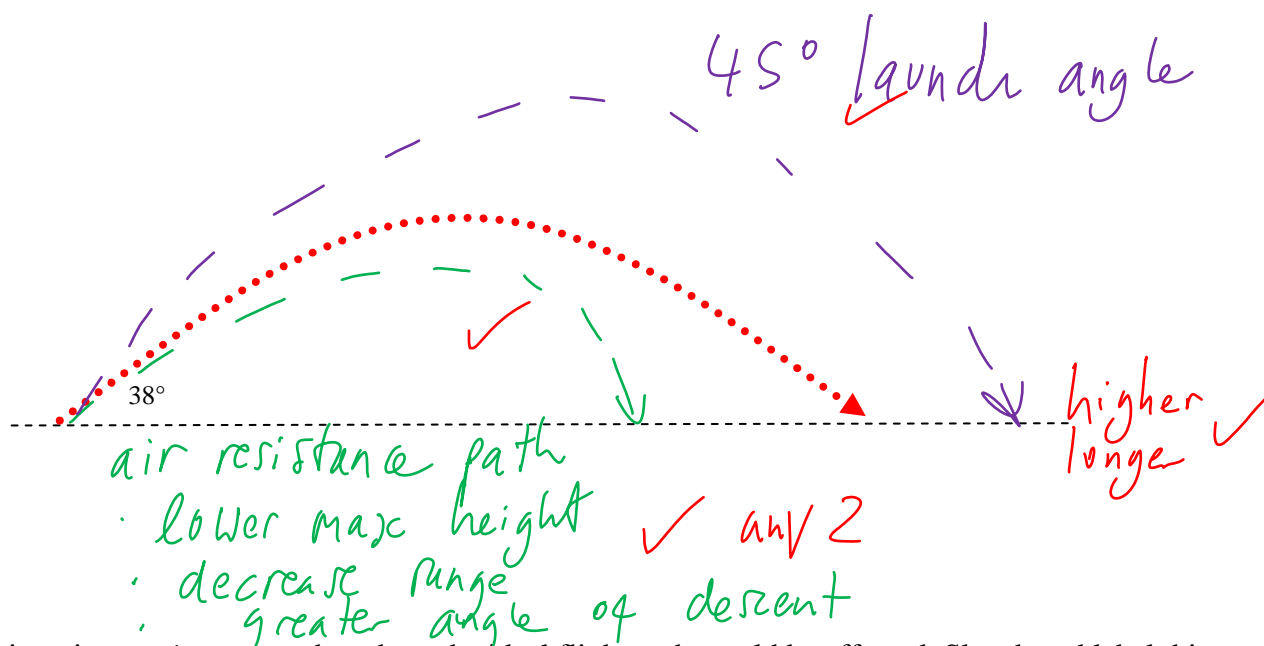 45° launch angle
38°
higher
longer
air resistance path
· lower max height
any 2
· decrease range
· greater angle of descent